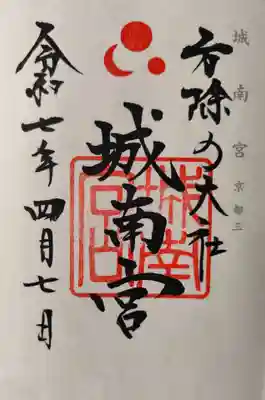 城南宮 京都三
方除の大社
城南宮
城南宮印
令和七年四月七日